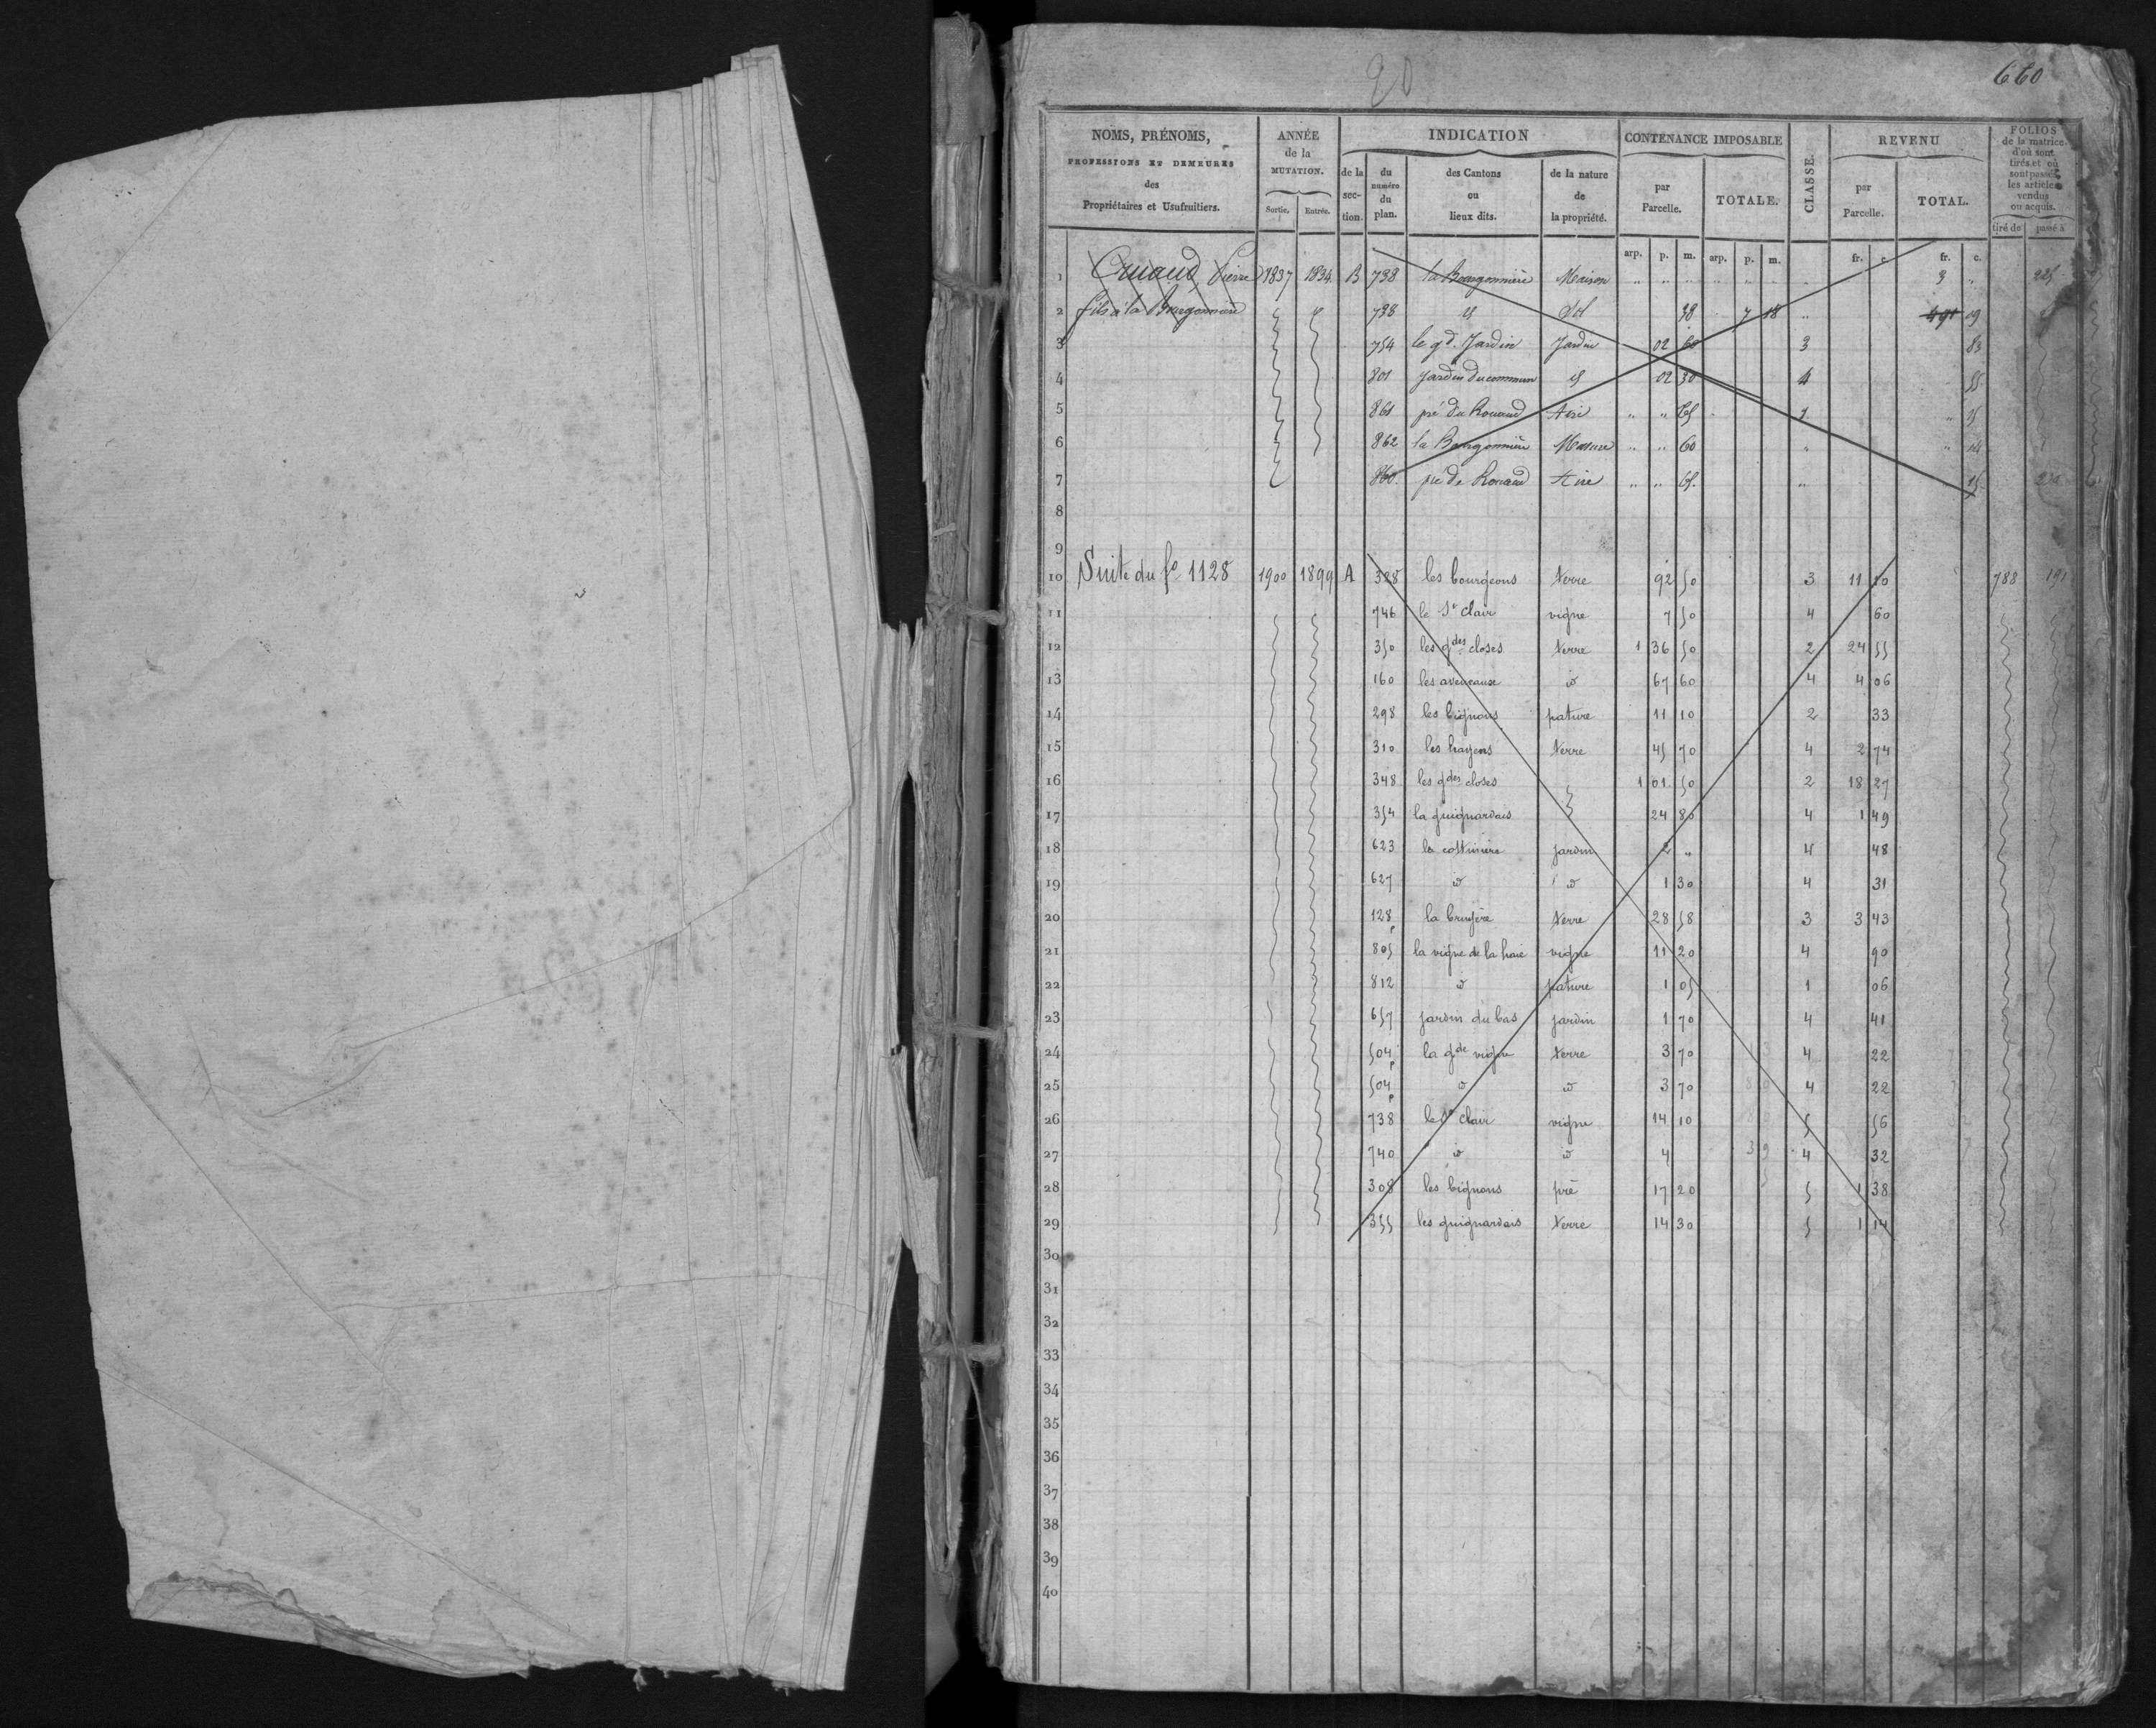 20
660
NOMS, PRÉNOMS, PROFESSIONS ET DEMEURES des Propriétaires et Usufruitiers.
ANNÉE de la MUTATION. Sortie. Entrée.
INDICATION de la section. du numéro du plan. des Cantons ou lieux dits. de la nature de la propriété.
CONTENANCE IMPOSABLE par Parcelle. TOTALE.
CLASSE.
REVENU par Parcelle. TOTAL.
FOLIOS de la matrice d'où sont tirés et où sont passés les articles vendus ou acquis. tiré de passé à
arp. p. m. arp. p. m. fr. c. fr. c.
1 Pierre 1837 1834 B 738 la Bourgonnière Maison " " " 3 "
2 fils à la Bourgonnière 738 id Sol 38 7 18 " 09
3 754 le gd. Jardin Jardin 02 60 3 83
4 801 jardin du commun id 02 30 4 55
5 861 pré du Rouaud Aire " " 65 1 15
6 862 la Bourgonnière Masure " " 60 " "
7 860 pré de Rouaud Aire " " 65 " 15
8
9
10 Suite du fo 1128 1900 1899 A 328 les bourgeons terre 92 50 3 11 10 788 191
11 746 le St clair vigne 7 50 4 60
12 350 les gdes closes terre 1 36 50 2 24 55
13 160 les aveneaux d 67 60 4 4 06
14 298 les bignons pature 11 10 2 33
15 310 les hayens terre 45 70 4 2 74
16 348 les gdes closes 1 01 50 2 18 27
17 354 la guignardais 24 80 4 1 49
18 623 la costinière jardin 2 " 4 48
19 627 d d 1 30 4 31
20 128 p la bruyère terre 28 58 3 3 43
21 805 la vigne de la haie vigne 11 20 4 90
22 812 d pature 1 05 1 06
23 657 jardin du bas jardin 1 70 4 41
24 504 p la gde vigne terre 3 70 4 22
25 504 p d d 3 70 4 22
26 738 le St clair vigne 14 10 5 56
27 740 d d 4 4 32
28 308 les bignons pré 17 20 5 1 38
29 355 les guignardais terre 14 30 5 1 14
30
31
32
33
34
35
36
37
38
39
40